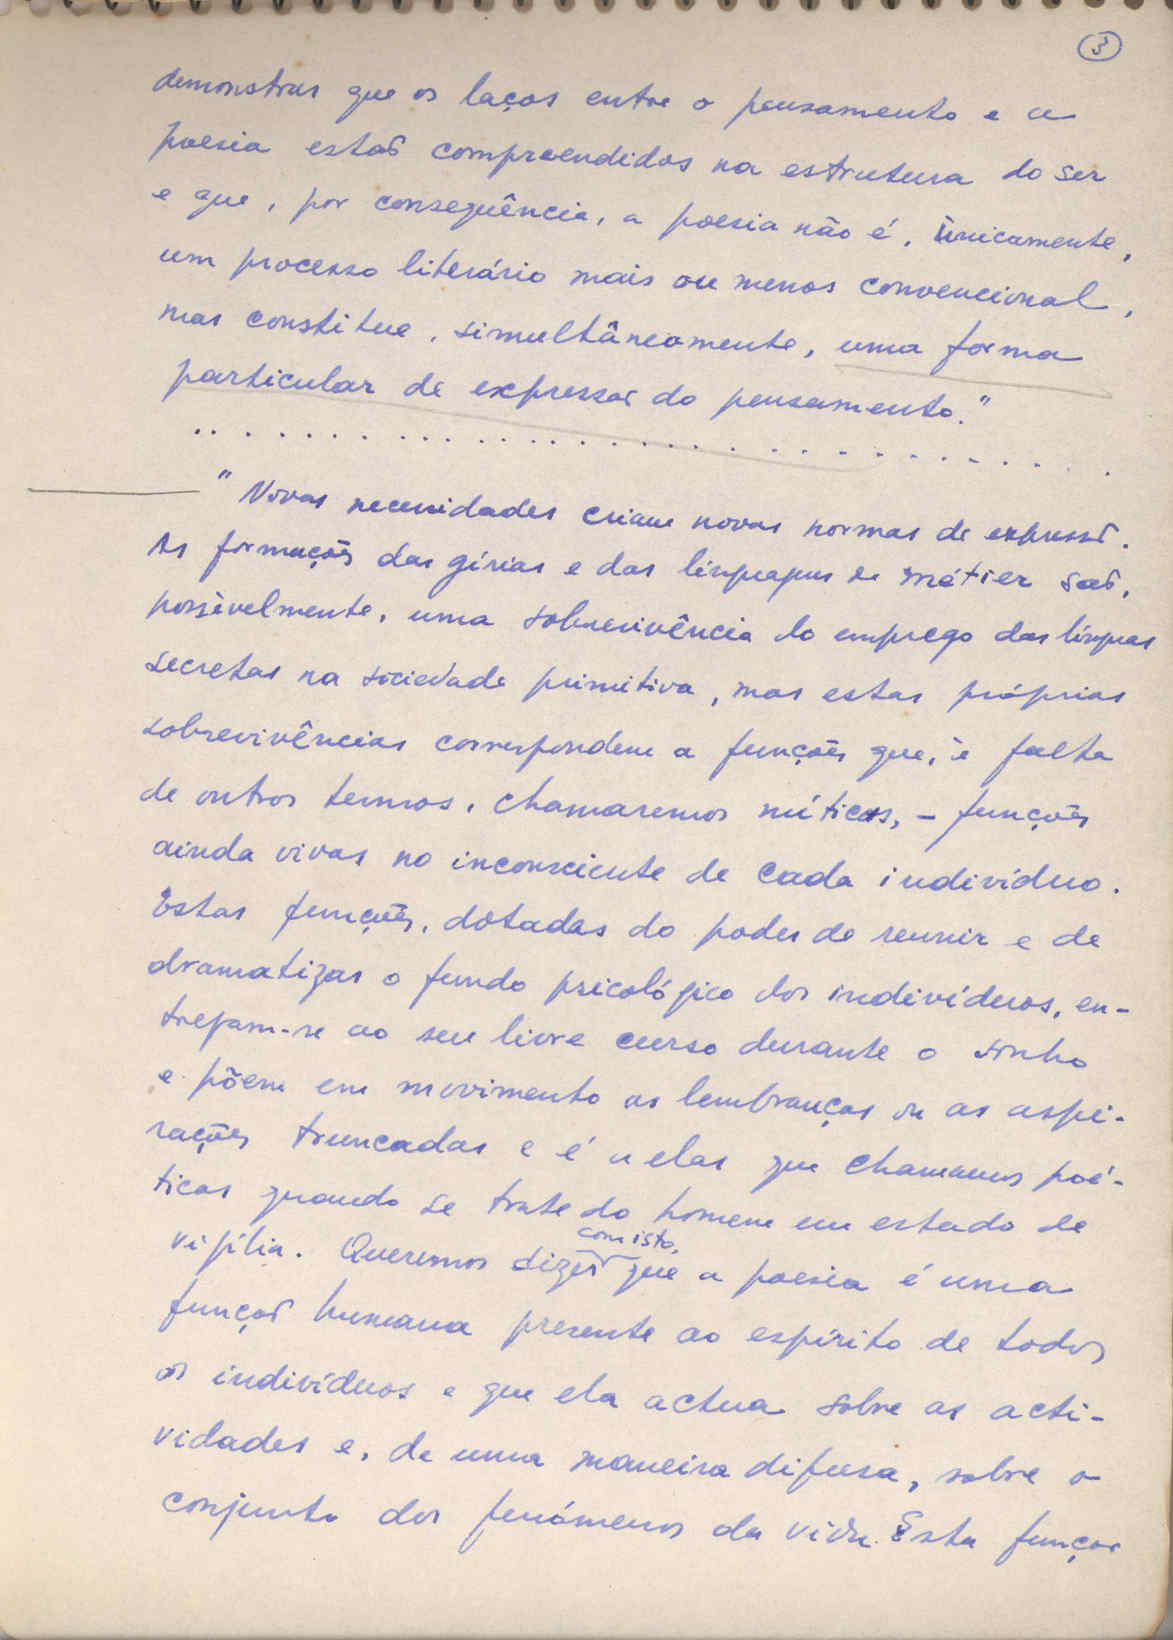 3
demonstrar que os laços entre o pensamento e a
poesia estão compreendidos na estrutura do ser
e que, por consequência, a poesia não é, ùnicamente,
um processo literário mais ou menos convencional,
mas constitue, simultâneamente, uma forma
particular de expressão do pensamento."
. . . . . . . . . . . . . . . . . . . . . . . . . . . . . .
"Novas necessidades criam novas normas de expressão.
As formações das gírias e das linguagens de métier são,
possìvelmente, uma sobrevivência do emprego das línguas
secretas na sociedade primitiva, mas estas próprias
sobrevivências correspondem a funções que, à falta
de outros termos, chamaremos míticas, – funções
ainda vivas no inconsciente de cada indivíduo.
Estas funções, dotadas do poder de reunir e de
dramatizar o fundo psicológico dos indivíduos, en-
tregam-se ao seu livre curso durante o sonho
e põem em movimento as lembranças ou as aspi-
rações truncadas e é a elas que chamamos poé-
ticas quando se trate do homem em estado de
vigília. Queremos dizer com isto, que a poesia é uma
função humana presente ao espírito de todos
os indivíduos e que ela actua sobre as acti-
vidades e, de uma maneira difusa, sobre o
conjunto dos fenómenos da vida. Esta função